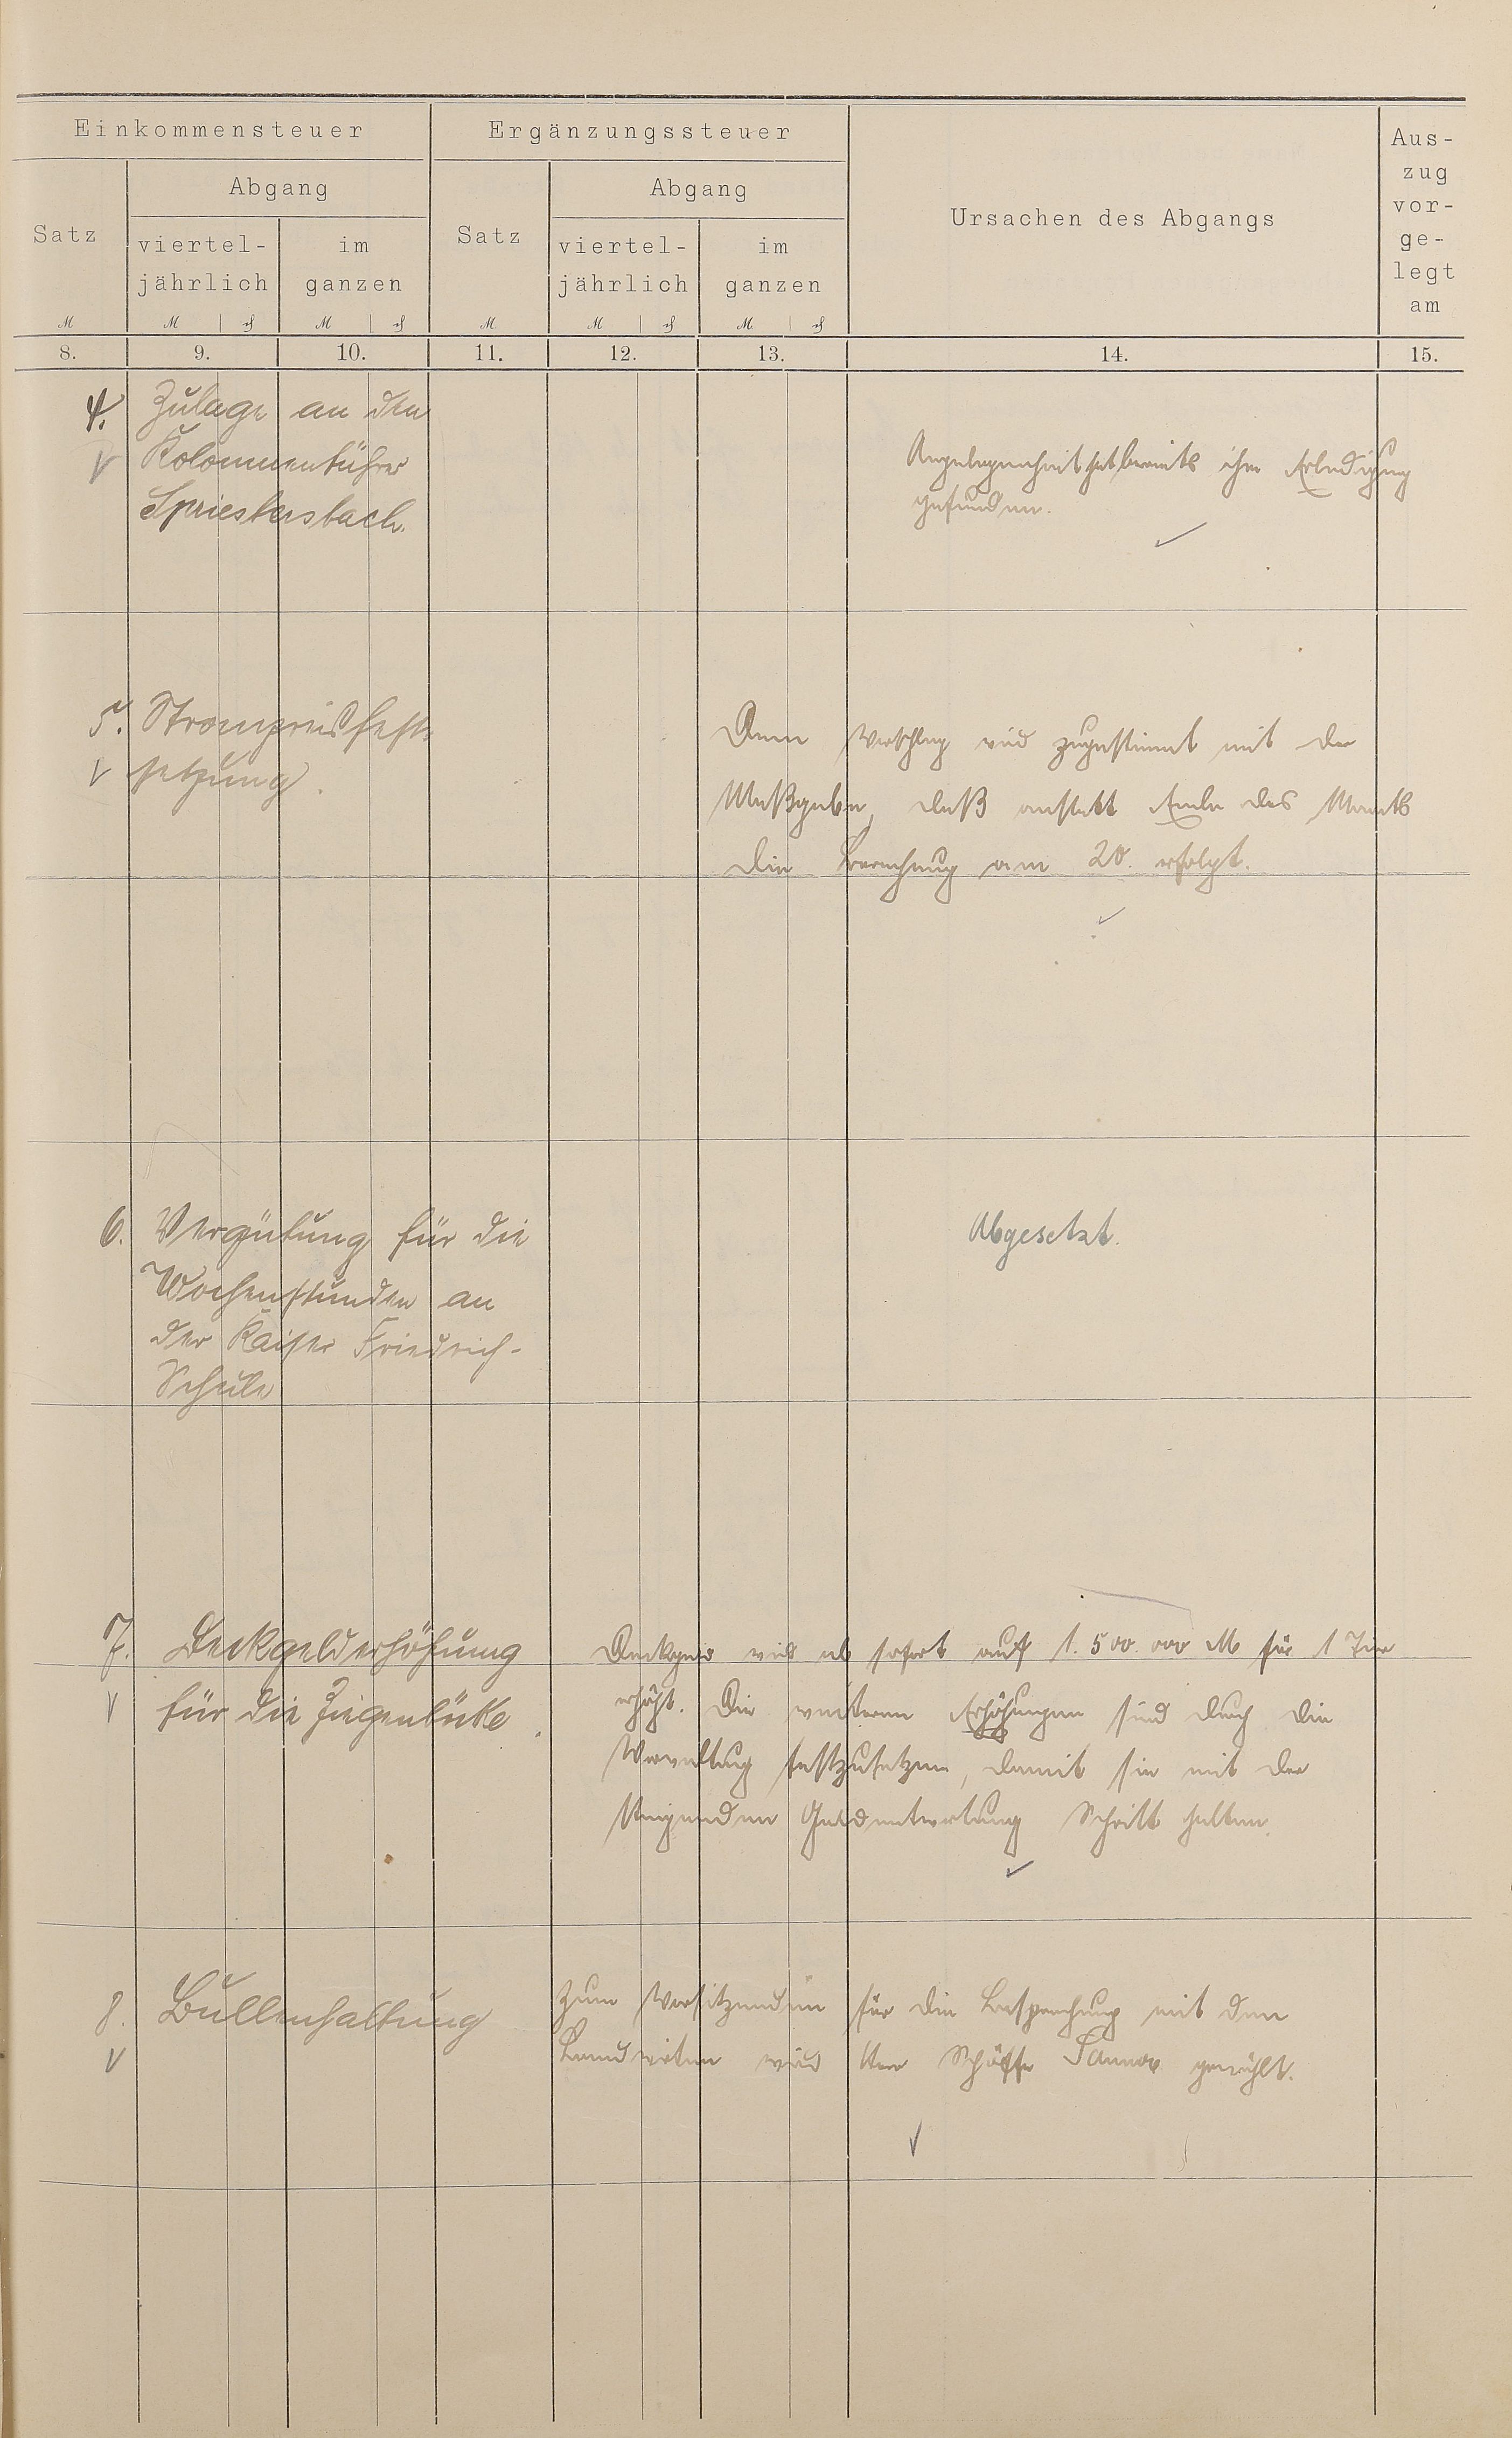 Einkommensteuer
Ergänzungssteuer
Ursachen des Abgangs
Aus-
zug
vor-
ge-
legt
am
Satz
Abgang
viertel-
jährlich
im
ganzen
Satz
Abgang
viertel-
jährlich
im
ganzen
M
M
M
M
M
M
8.
9.
10.
11.
12.
13.
14.
15.
4. Zulage an den
Kolonnenführer
Spriestersbach.
Angelegenheit hat bereits ihre Erledigung
gefunden.
5. Strompreisfest-
setzung.
Dem Vorschlag wird zugestimmt mit der
Maßgabe, daß anstatt Ende des Monats
die Berechnung am 20. erfolgt.
6. Vergütung für die
Wochenstunden an
der Kaiser Friedrich-
Schule
Abgesetzt.
7. Deckgelderhöhung
für die Ziegenböcke.
wird ab sofort auf 1.500.000 M für 1 Tier
erhöht. Die weiteren Erhöhungen sind durch die
Verwaltung festzusetzen, damit sie mit der
steigenden Geldentwertung Schritt halten.
8. Bullenhaltung
Zum Vorsitzenden für die Besprechung mit den
Landwirten wird Herr Schöffe gewählt.